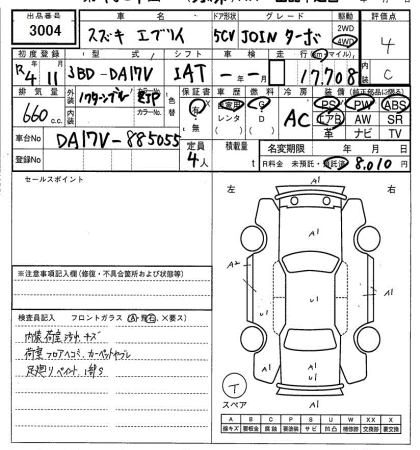 出品番号 車名 ドア形状 グレード 駆動 評価点
3004 スズキ エブリイ 5CV JOIN ターボ 2WD 4WD 4
初度登録 型式 シフト 車検 走行 (km・マイル) 内装
R4 11 JBD-DA17V IAT 年 月 17,708 C
排気量 外装 色替 保証書 車歴 燃料 冷房 装備(純正部品に限る)
660 c.c. カラーNo. Z2P 有・無 自家用 レンタ G D AC PS PW ABS
内装 カラーNo. エアB AW SR
革 ナビ TV
車台No DA17V-885055 定員 4人 積載量 t 名変期限 年 月 日
登録No R料金 未預託・預託済 8,010 円
セールスポイント 左 右
A1
A1
A2 U1 A1
U1 U1
A1
A1
※注意事項記入欄(修復・不具合箇所および状態等)
検査員記入 フロントガラス (A・飛石、×要ス)
内装 荷室 汚れ キズ
荷室 フロアヘコミ、カーペットヤブレ
足廻り ペイント、1部S
T
スペア
A B C P S U W XX X
線キズ 要板金 腐蝕 要塗装 サビ 凹凸 補修跡 交換跡 要交換